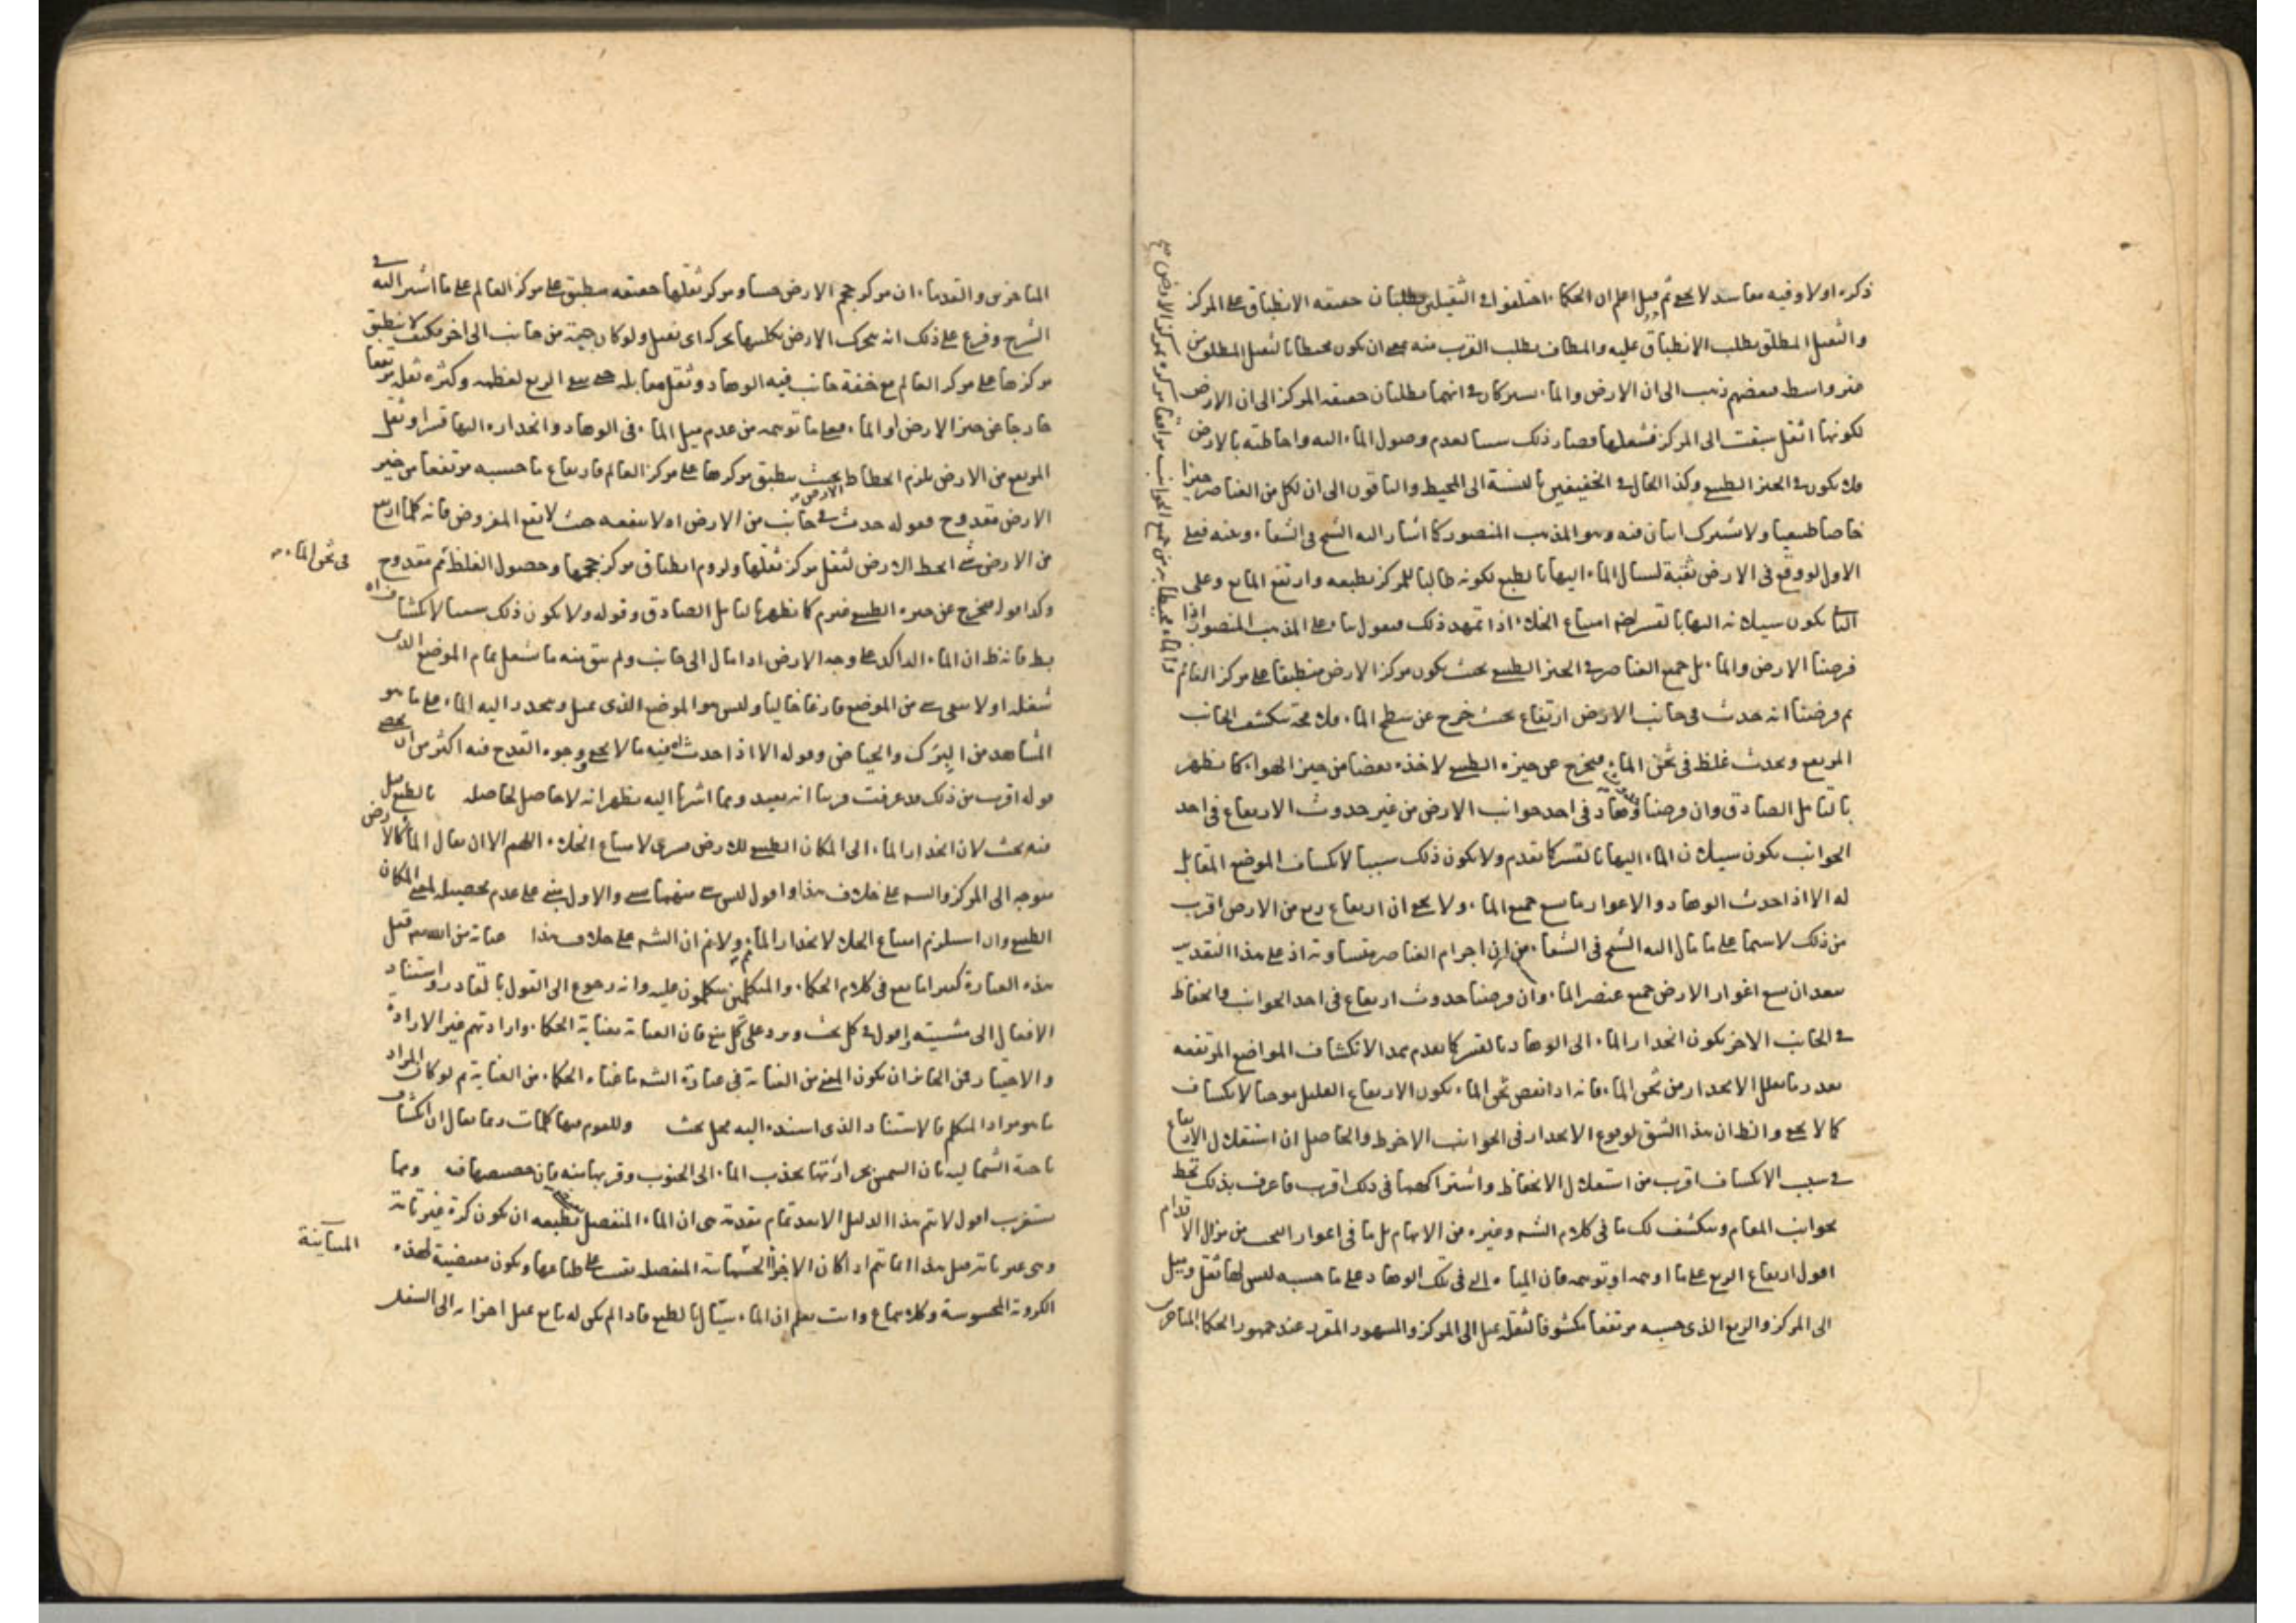 ذكره اولا وفيه مفاسد لا يخفى ثم قيل اعلم ان الحكماء اختلفوا في الثقيلين يطلبان حقيقة الانطباق على المركز
والثقيل المطلق يطلب الانطباق عليه والمضاف يطلب القرب منه بمعنى ان يكون محيطا بالثقيل المطلق من
غير واسطة فبعضهم ذهب الى ان الارض والماء يشتركان في انهما يطلبان حقيقة المركز الى ان الارض
لكونها اثقل سبقت الى المركز فشغلها فصار ذلك سببا لعدم وصول الماء اليه واحاطته بالارض
فلا يكون في الحيز الطبيعي وكذا الحال في الخفيفين بالنسبة الى المحيط والباقون الى ان لكل من العناصر حيزا
خاصا طبيعيا ولا يشترك اثنان فيه وهو المذهب المنصور كما اشار اليه الشيخ في الشفاء وغيره فعلى
الاول لو وقع في الارض ثقبة لسال الماء اليها بالطبع لكونه طالبا للمركز بطبعه وارتفع المانع وعلى
الثاني يكون سيلانه اليها بالقسر لضرورة امتناع الخلاء اذا تمهد ذلك فنقول بناء على المذهب المنصور اذا
فرضنا الارض والماء بل جميع العناصر في الحيز الطبيعي بحيث يكون مركز الارض منطبقا على مركز العالم
والماء محيطا به من جميع الجوانب موافقا مركزه لمركز الارض صح
ثم فرضنا انه حدث في جانب الارض ارتفاع بحيث خرج عن سطح الماء فلا محة ينكشف الجانب
المرتفع ويحدث غلظ في ثخن الماء فيخرج عن حيزه الطبيعي لاخذه بعضا من حيز الهواء كما يظهر
بالتامل الصادق وان فرضنا وهاد في احد جوانب الارض من غير حدوث الارتفاع في احد
الجوانب يكون سيلان الماء اليها بالقسر كما تقدم ولا يكون ذلك سببا لانكشاف الموضع المقابل
له الا اذا احدث الوهاد والاغوار ما يسع جميع الماء ولا يخفى ان ارتفاع ربع من الارض اقرب
من ذلك لا سيما على ما مال اليه الشيخ في الشفاء من ان اجرام العناصر متساوية اذ على هذا التقدير
يبعد ان يسع اغوار الارض جميع عنصر الماء وان فرضنا حدوث ارتفاع في احد الجوانب وانخفاض
في الجانب الاخر يكون انحدار الماء الى الوهاد بالقسر كما تقدم ممدا لانكشاف المواضع المرتفعة
بقدر ما يقلل الانحدار من ثخن الماء فانه اذا نقص ثخن الماء يكون الارتفاع القليل موجبا لانكشاف
كما لا يخفى والظ ان هذا الشق لوقوع الانحدار في الجوانب الاخر ظ والحاصل ان استقلال الارتفاع
في سبب الانكشاف اقرب من استقلال الانخفاض واشتراكهما في ذلك اقرب فاعرف بذلك تحط
بجوانب المقام وينكشف لك ما في كلام الشه وغيره من الابهام بل ما في اغوار البحث من مزال الاقدام
اقول ارتفاع الربع على ما اوهمه او توهمه فان المياه في تلك الوهاد على ما حسبه ليس لها ثقل وميل
الى المركز والربع الذي حسبه مرتفعا مكشوفا لثقله يميل الى المركز والمشهور المقرر عند جمهور الحكماء المتاخرين
المتاخرين والقدماء ان مركز حجم الارض حسا ومركز ثقلها حقيقة منطبق على مركز العالم على ما اشير اليه في
الشرح وفرع على ذلك انه يتحرك الارض بكليتها بحركة اي ثقيل ولو كان جهته من جانب الى اخر فكيف لا ينطبق
مركزها على مركز العالم مع خفة جانب فيه الوهاد وثقل مقابله حتى يبقى الربع لعظمه وكثرة ثقله مرتفعا
خارجا عن حيز الارض او الماء فعلى ما توهمه من عدم ميل الماء في الوهاد وانحداره اليها قسرا وثقل
المرتفع من الارض يلزم انحطاط الارض بحيث ينطبق مركزها على مركز العالم فارتفاع ما حسبه مرتفعا من خير
الارض مقدوح فقوله حدث في جانب من الارض اه لا ينفعه حيث لا يقع المفروض فانه كلما ارتفع
من الارض شئ انحط الارض لثقل مركز ثقلها ولزوم انطباق مركز حجمها وحصول الغلظ ثم مقدوح
في ثخن الماء
وكذا قوله فيخرج عن حيزه الطبيعي غير لازم كما يظهر بالتامل الصادق وقوله ولا يكون ذلك سببا لانكشاف اه
بط فانه ظ ان الماء الراكد على وجه الارض اذا مال الى جانب ولم يبق منه ما يشغل تمام الموضع الذي
شغله اولا يبقى شئ من الموضع فارغا خاليا وليس هو الموضع الذي يميل وينحدر اليه الماء على ما هو
المشاهد من البرك والحياض وقوله الا اذا حدث فيه ما لا يخفى ووجوه القدح فيه اكثر من ان يحصى
قوله اقرب من ذلك قد عرفت قريبا انه بعيد ومما اشرنا اليه يظهر انه لا حاصل لحاصله بالطبع قيل
فيه بحث لان انحدار الماء الى المكان الطبيعي للارض قسري لامتناع الخلاء اللهم الا ان يقال الماء كالارض
متوجه الى المركز والشه على خلاف هذا واقول ليس شئ منهما بشئ والاول مبني على عدم تحصيله لمعنى المكان
الطبيعي وان استلزم امتناع الخلاء لانحدار الماء ولا ثم ان الشه على خلاف هذا عناية من الله تع قيل
هذه العبارة كثيرا ما يقع في كلام الحكماء والمتكلمين يتكلمون عليه وانه رجوع الى القول بالقادر واستناد
الافعال الى مشيته واقول في كل بحث ويرد على كل منع فان العناية بعناية الحكماء وارادتهم غير الارادة
والاختيار فمن الجائز ان يكون المعنى من العناية في عبارة الشه ما عناه الحكماء من العناية ثم لو كان المراد
ما هو مراد المتكلم فالاستناد الذي اسنده اليه محل بحث وللقوم فيها كلمات ومما يقال ان انكشاف
ناحية الشمالية بان الشمس بحرارتها يجذب الماء الى الجنوب وقربها منه فان حضيضها فيه ومما
يستغرب اقول لا يتم هذا الدليل الا بعد تمام مقدمة هي ان الماء المنفصل بطبعه ان يكون كرة غير ثابتة
وهي غير تامة قيل هذا انما يتم اذا كان الاجزاء الجسمانية المنفصلة تبقى على طباعها ويكون مقتضية لهذه
المتباينة
الكروية المحسوسة وكلاهما ع وانت تعلم ان الماء سيال بالطبع فاذا لم يكن له مانع يميل اجزائه الى السفل